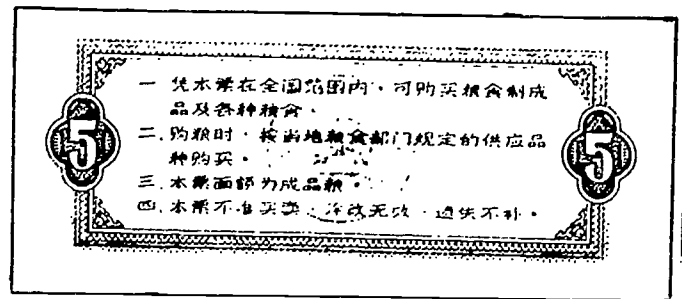 一 凭本票在全国范围内，可购买粮食制成
品及各种粮食。
二、购粮时，按当地粮食部门规定的供应品
种购买。
三、本票面额为成品粮。
四、本票不准买卖，涂改无效，遗失不补。
5
5